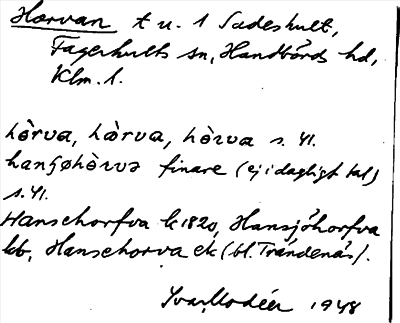 Horvan t u. 1 Sadeshult,
Fagerhults sn, Handbörds hd,
Klm. l.
hòrva, hàrva, hòrva s. 41.
hanʃøhòrva finare (ej i dagligt tal)
s. 41.
Hanschorfva k 1820, Hansjöhorfva
kb, Hanschorva ek (bl. Trändenäs).
Ivar Modéer 1948